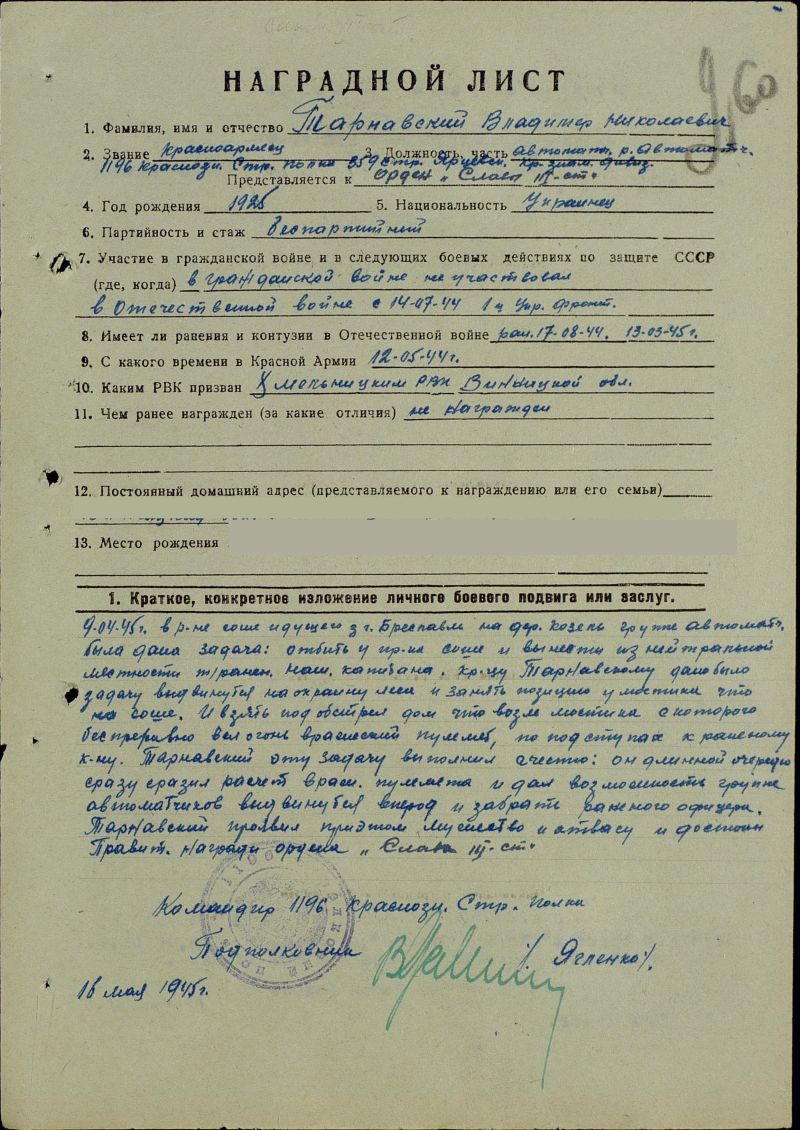 НАГРАДНОЙ ЛИСТ
60
1. Фамилия, имя и отчество Тарнавский Владимер Николаевич
2. Звание Красноармеец 3. Должность, часть автомат. р. автоматч.
1196 Краснозн. Стр. полка 359 стр. Ярцевск. Кр. знам. дивиз.
Представляется к Орден „Слава III-ст"
4. Год рождения 1925 5. Национальность Украинец
6. Партийность и стаж беспартийний
7. Участие в гражданской войне и в следующих боевых действиях по защите СССР
(где, когда) в гражданской войне не участвовал
в Отечественной войне с 14-07-44 1й Укр. фронт.
8. Имеет ли ранения и контузии в Отечественной войне ран. 17-08-44. 13-03-45г.
9. С какого времени в Красной Армии 12-05-44г.
10. Каким РВК призван Хмельницким РВК Винницкой обл.
11. Чем ранее награжден (за какие отличия) не награжден
12. Постоянный домашний адрес (представляемого к награждению или его семьи)
13. Место рождения
1. Краткое, конкретное изложение личного боевого подвига или заслуг.
9-04-45г. в р-не соше идущего з г. Бреславл на дер. Козель групе автомат.
была дана задача: отбить у пр-ка соше и вынести из нейтральной
местности т/ранен. наш. капитана. Кр-цу Тарнавскому дано было
задачу выдвинутся на окраину леса и занять позицию у мостика что
на соше. И взять под обстрел дом что возле мостика с которого
беспреривно вел огонь вражеский пулемет, по подступах к раненому
к-ну. Тарнавский эту задачу выполнил с честю: он длинной очередю
сразу сразил расчет враж. пулемета и дал возможность групе
автоматчиков выдвинутся вперод и забрать раненого офицера.
Тарнавский проявил приэтом мужество и отвагу и достоин
Правит. награди ордена „Слава III-ст"
Командир 1196 Краснозн. Стр. полка
Подполковник /Ягленко/.
16 мая 1945г.